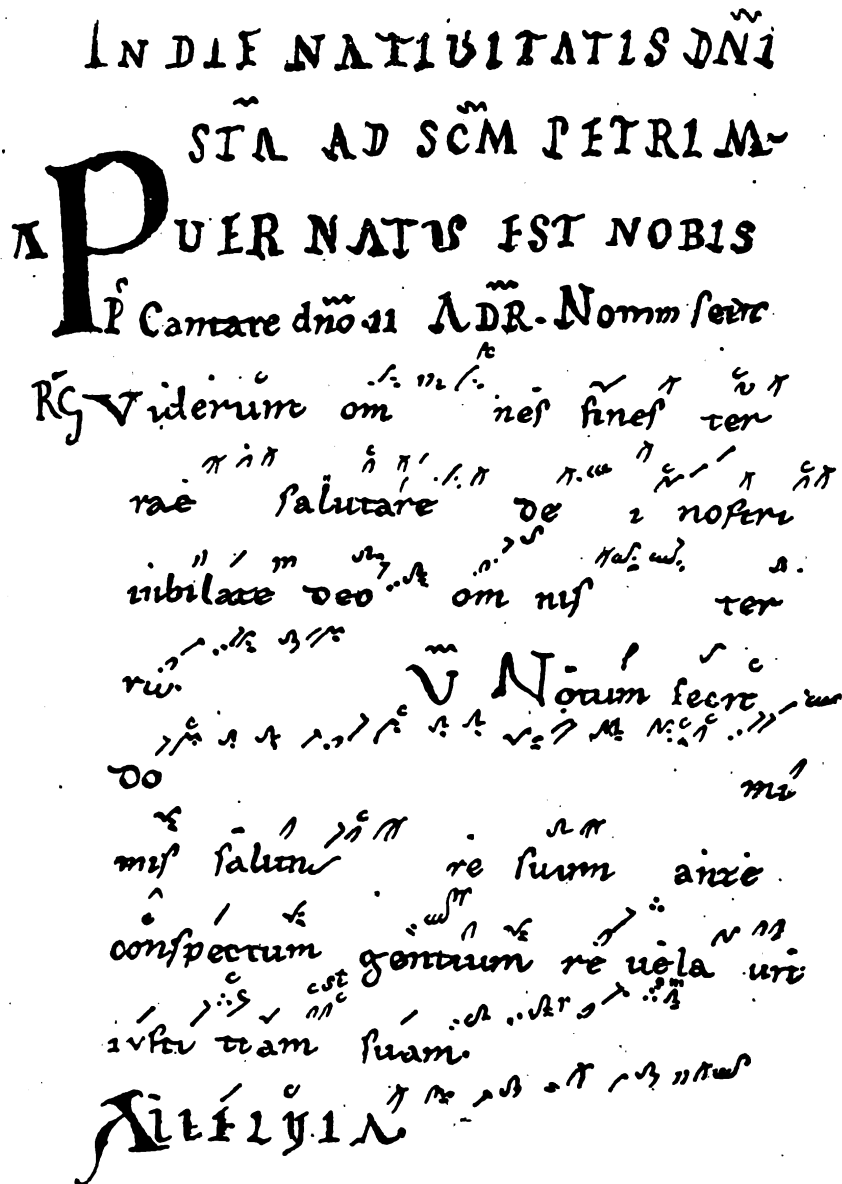 IN DIE NATIUITATIS DN̅I
ST̅A AD SC̅M PETRUM
A PUER NATUS EST NOBIS
Ps Cantare dn̅o .II A DR̅. Nomm fecit
RG Viderunt om nes fines ter
rae salutare de i nostri
iubilate deo om nis ter
ra.
V̅ Notum fecit
do mi
nus saluta re suum ante
conspectum gentium re uela uit
iusti tiam suam.
ALLELUIA.